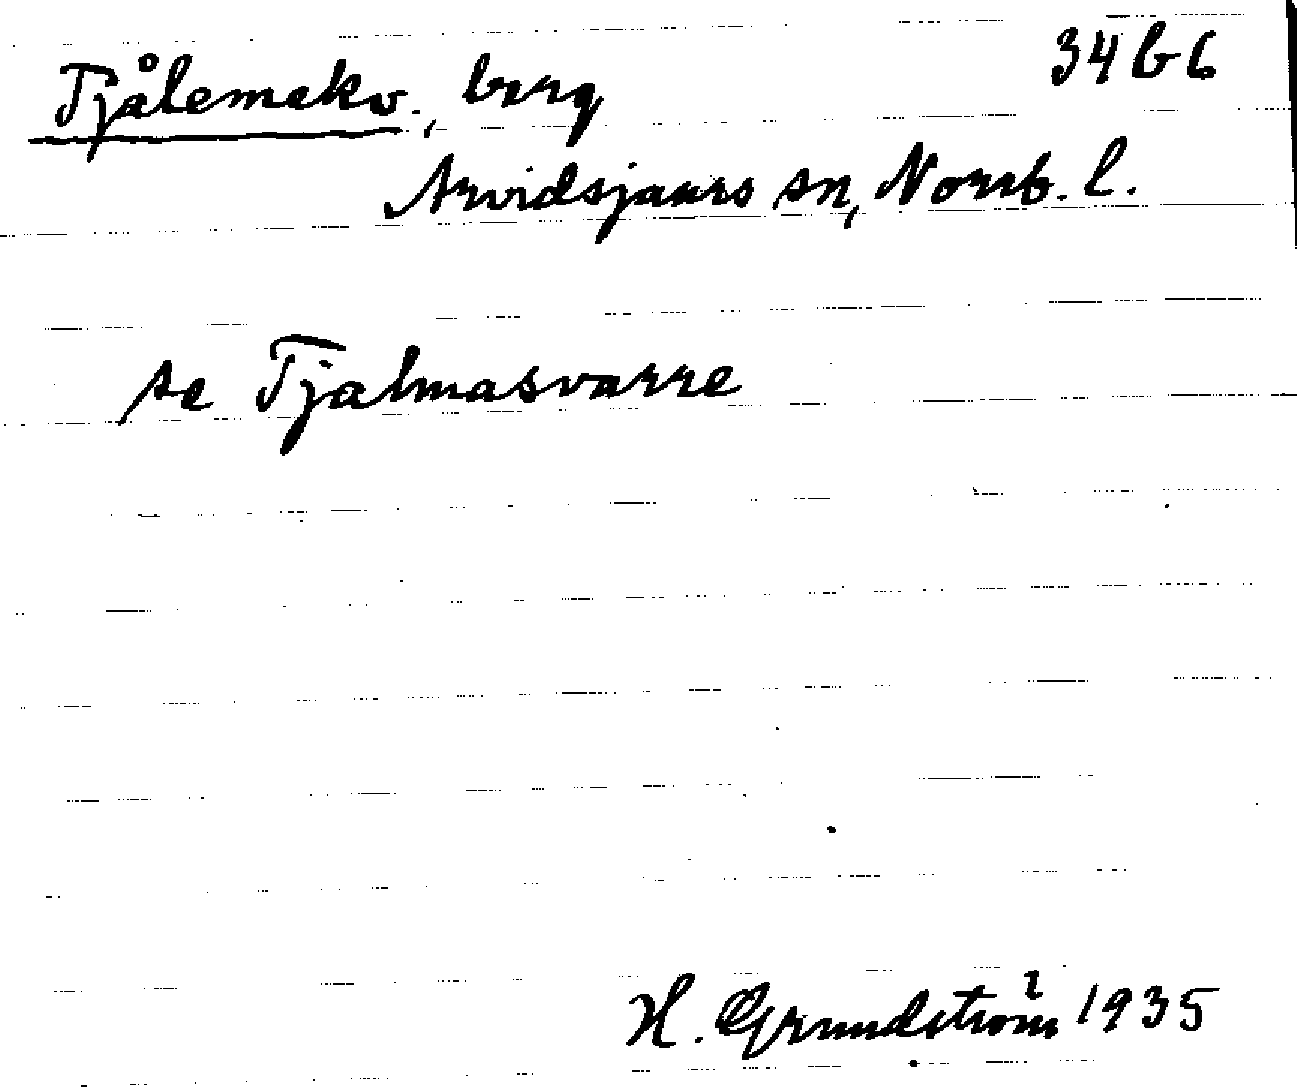 34 b 6
Tjålemekv., berg
Arvidsjaurs sn, Norrb. l.
se Tjalmasvarre
H. Grundström 1935